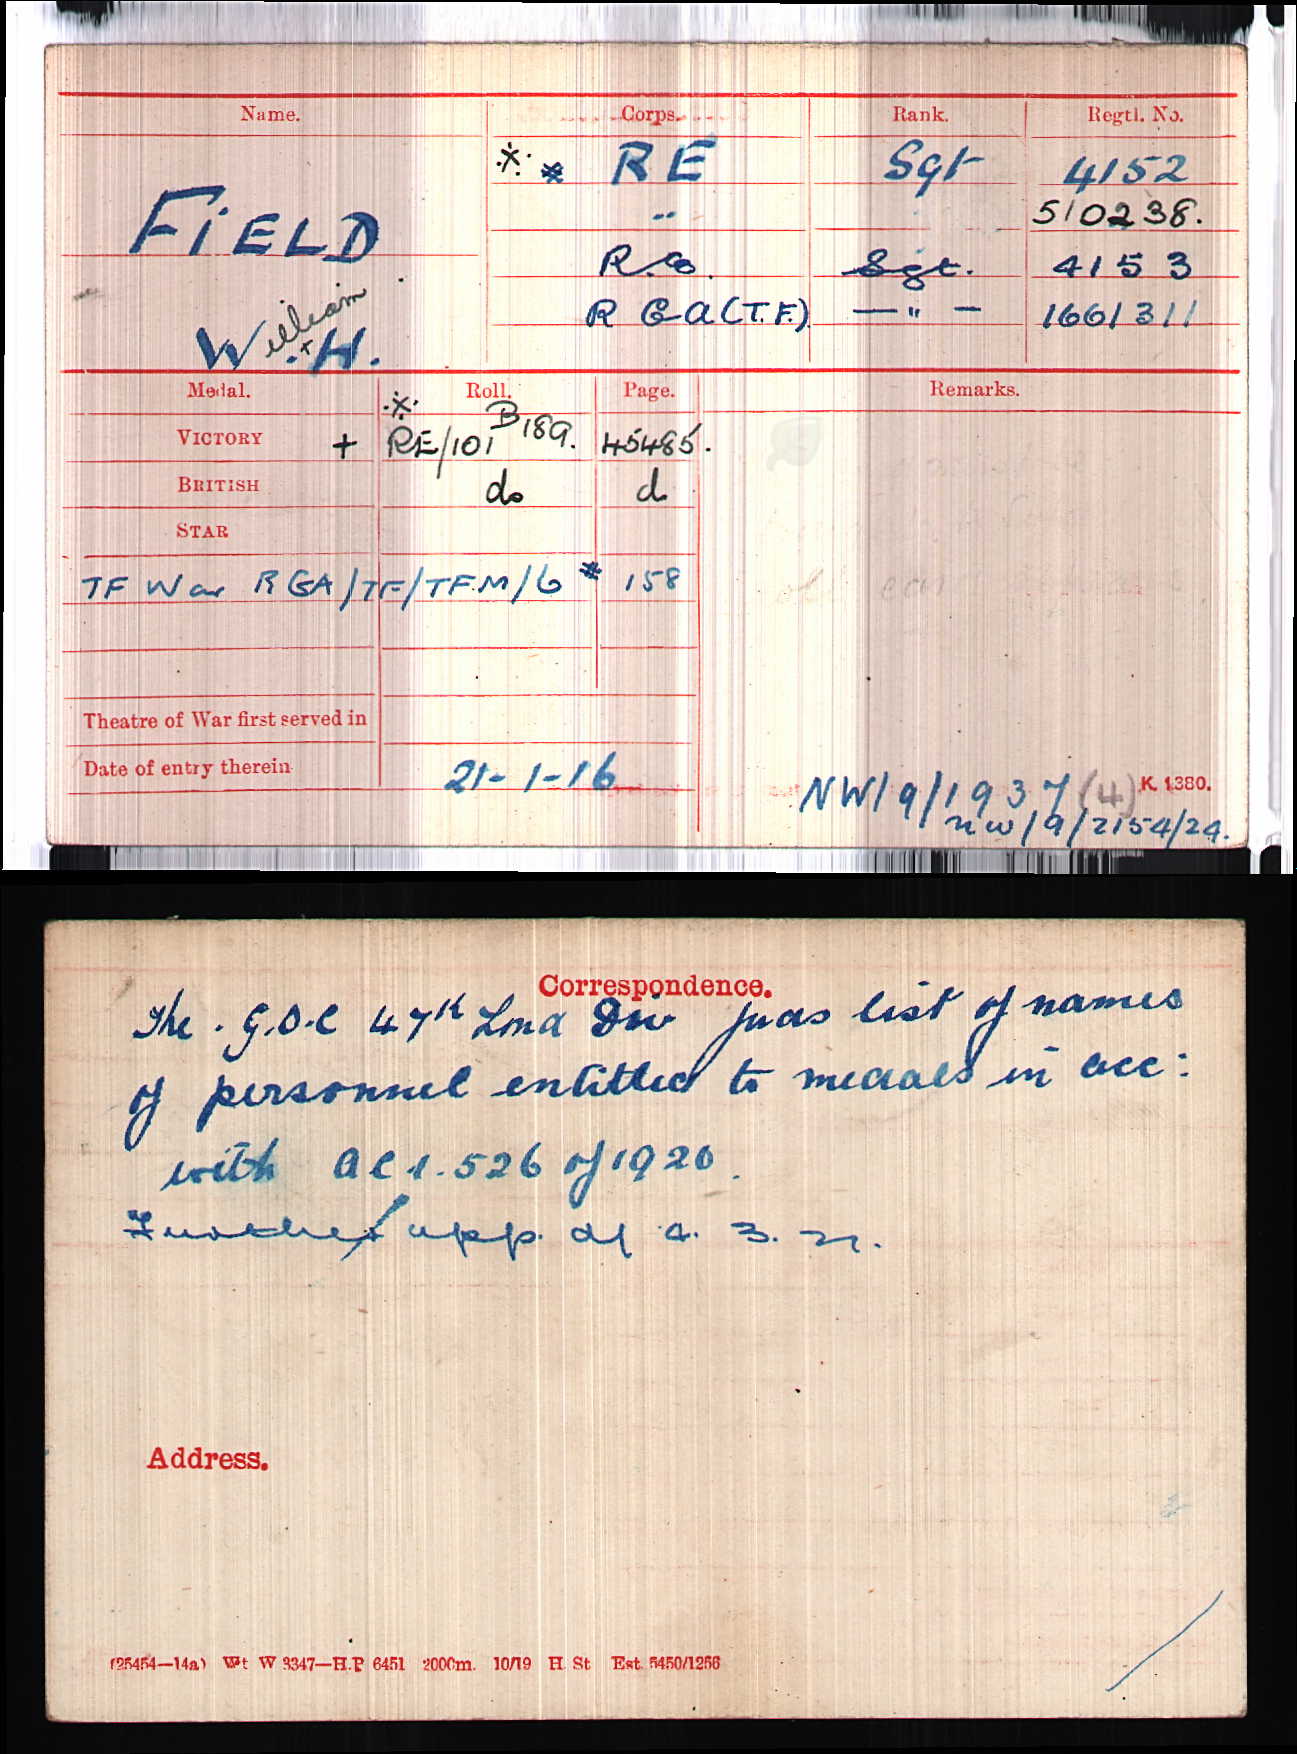 Name. Corps. Rank. Regtl. No.
FIELD
William
W. + H.
※ * RE Sgt 4152
" 510238.
R.Co. Sgt. 4153
R G A (T.F.) — " — 1661311
Medal. Roll. Page. Remarks.
VICTORY + ※ RE/101 B189. 45485.
BRITISH do do
STAR
TF War RGA/TF/TFM/6 * 158
Theatre of War first served in
Date of entry therein 21-1-16
NW/9/1937 (4) K. 1380.
nw/9/2154/24.
Correspondence.
The G.O.C 47th Lond Div fwds list of names
of personnel entitled to medals in acc:
with ACI. 526 of 1920.
Further app. of 4. 3. 21.
Address.
(25454—14a) Wt W 3347—H.P 6451 2000m. 10/19 H. St Est. 5450/1256